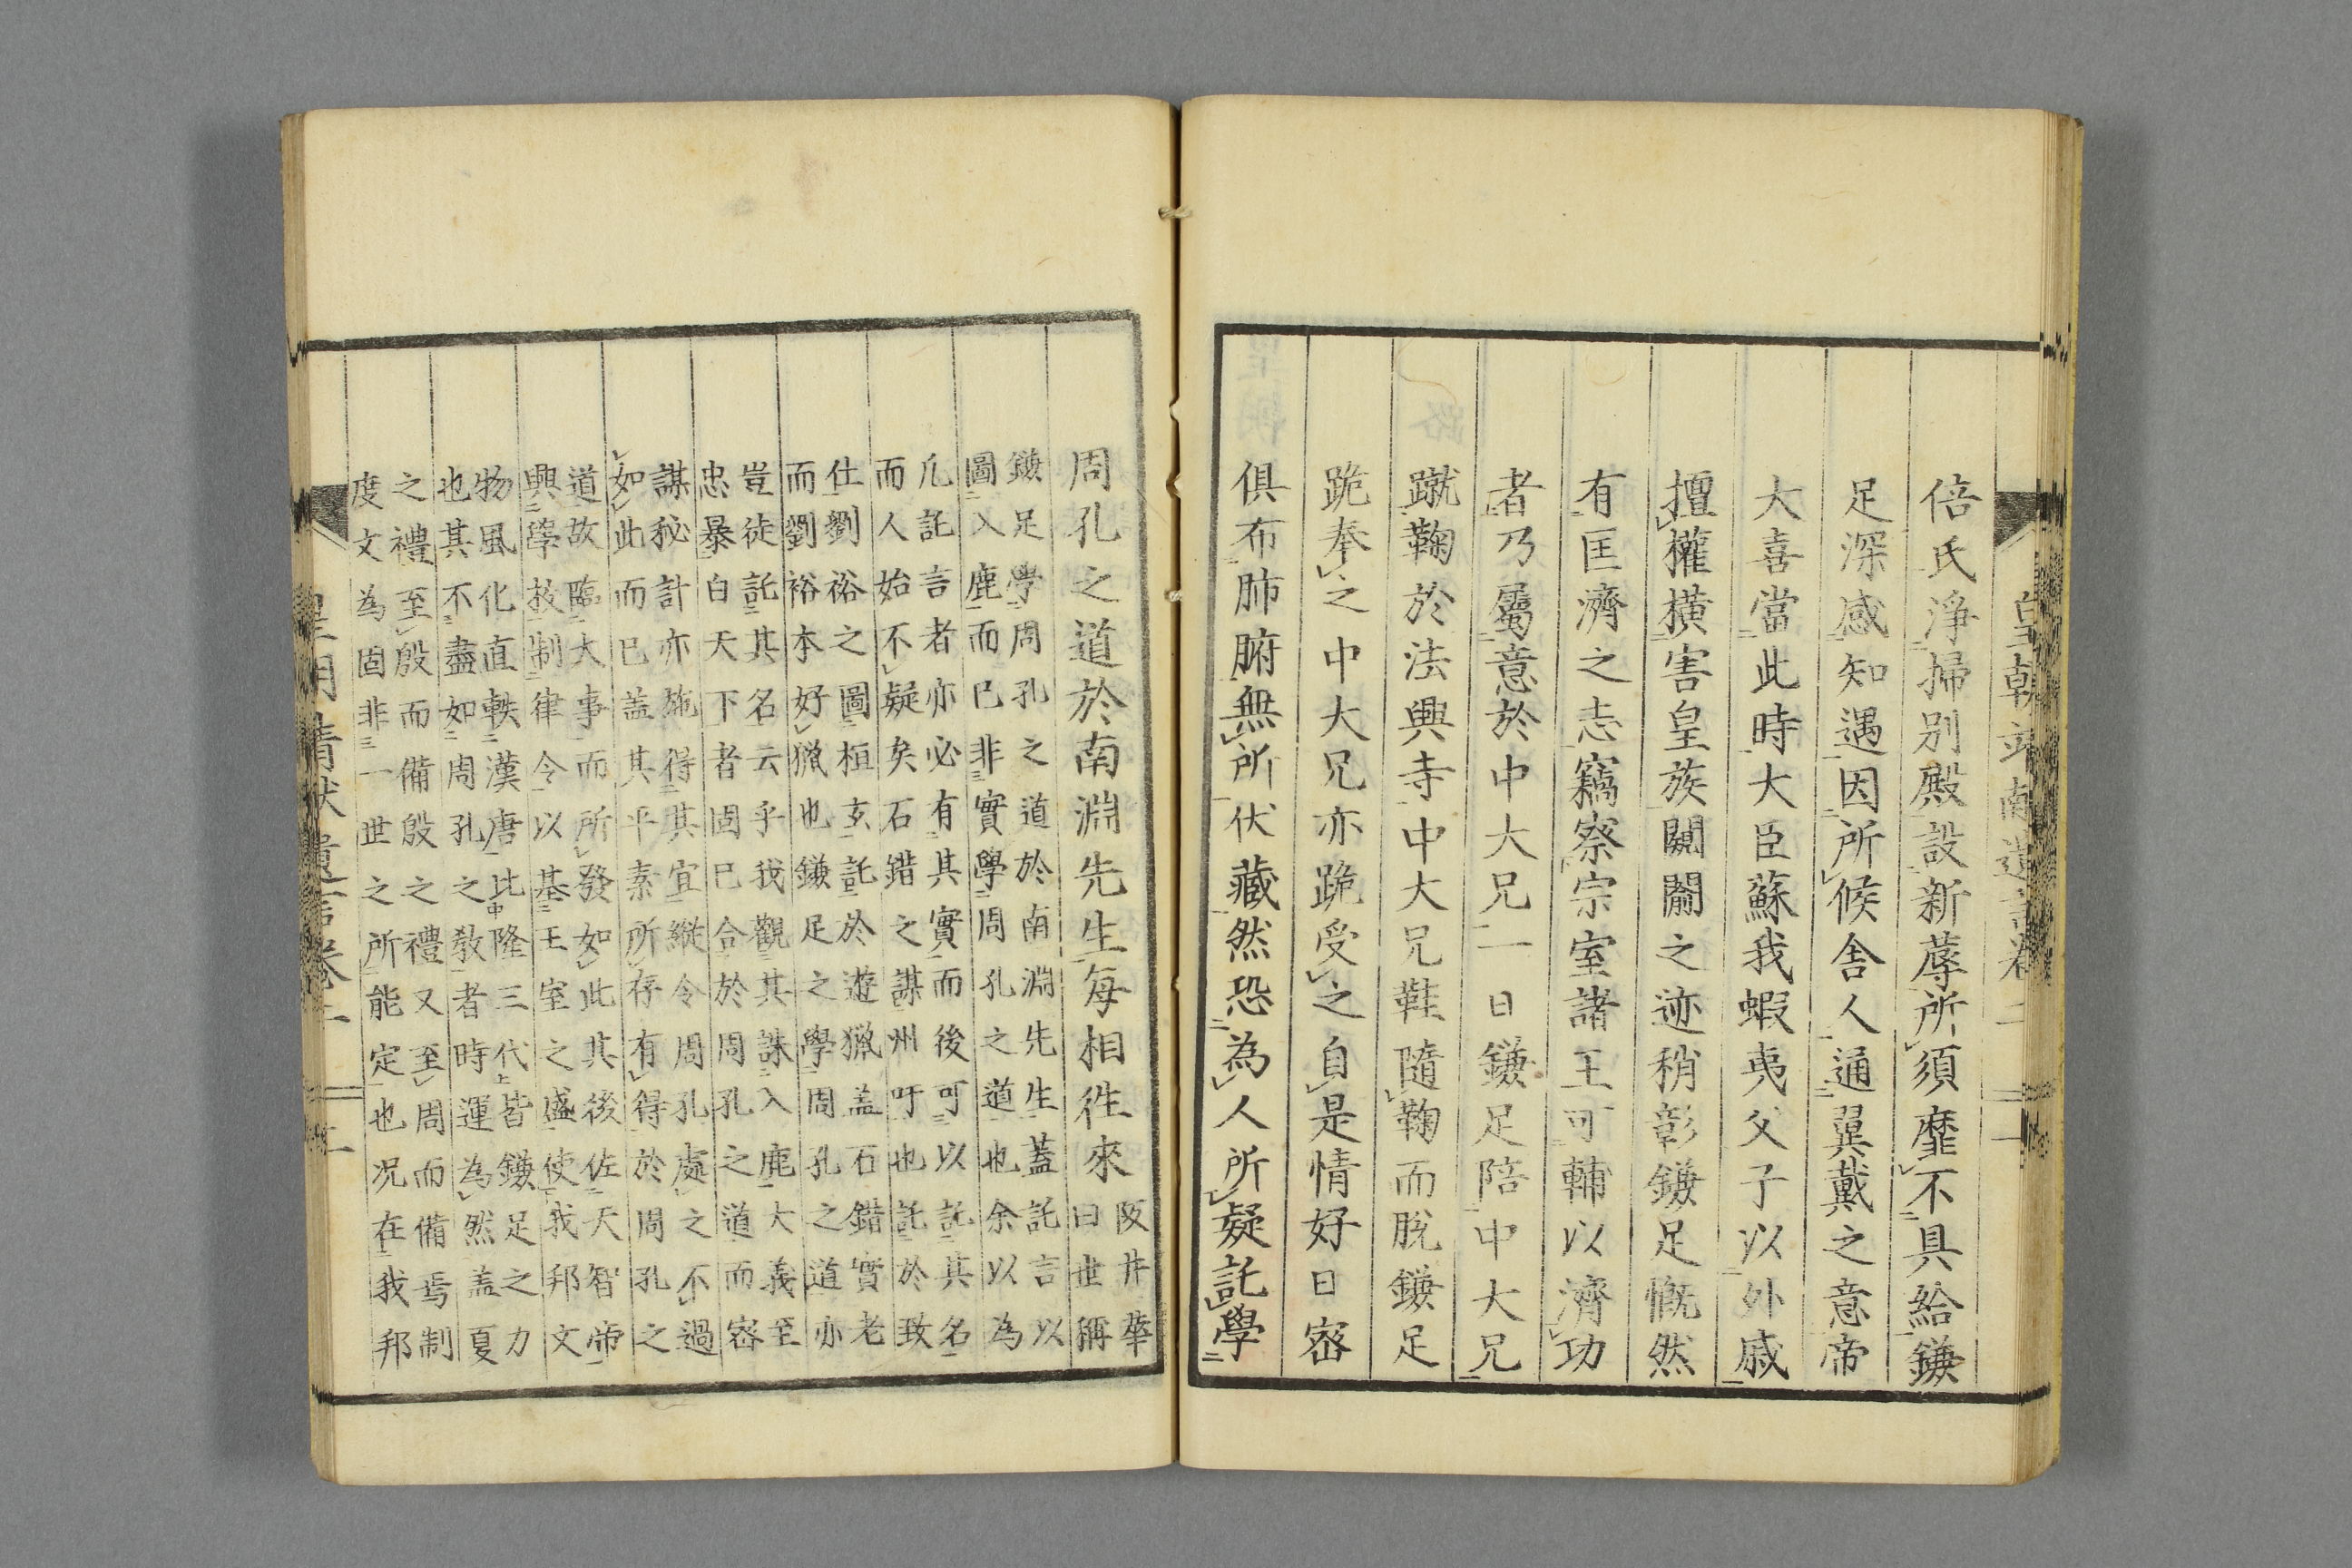 倍氏淨掃別殿設新蓐所須靡不具給鎌
足深感知遇因所候舍人通翼戴之意帝
大喜當此時大臣蘇我蝦夷父子以外戚
擅權橫害皇族闚𨵦之迹稍彰鎌足慨然
有匡濟之志竊察宗室諸王可輔以濟功
者乃屬意於中大兄一日鎌足陪中大兄
蹴鞠於法興寺中大兄鞋隨鞠而脫鎌足
跪奉之中大兄亦跪受之自是情好日密
俱布肺腑無所伏藏然恐為人所疑託學
周孔之道於南淵先生每相徃來
阪井華
曰世稱
鎌足學周孔之道於南淵先生蓋託言以
圖入鹿而已非實學周孔之道也余以為
凡託言者亦必有其實而後可以託其名
而人始不疑矣石錯之謀州吁也託於致
仕劉裕之圖桓玄託於遊獵盖石錯實老
而劉裕本好獵也鎌足之學周孔之道亦
豈徒託其名云乎我觀其誅入鹿大義至
忠暴白天下者固已合於周孔之道而密
謀秘計亦施得其宜縱令周孔處之不過
如此而已盖其平素所存有得於周孔之
道故臨大事而所發如此其後佐天智帝
興學校制律令以基王室之盛使我邦文
物風化直軼漢唐比隆三代皆鎌足之力
也其不盡如周孔之教者時運為然盖夏
之禮至殷而備殷之禮又至周而備焉制
度文為固非一世之所能定也况在我邦